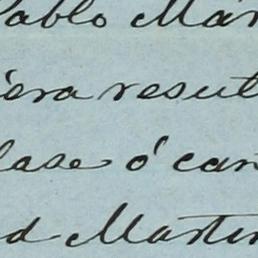 Pablo Mar
iera result
lase ó can
d Martin